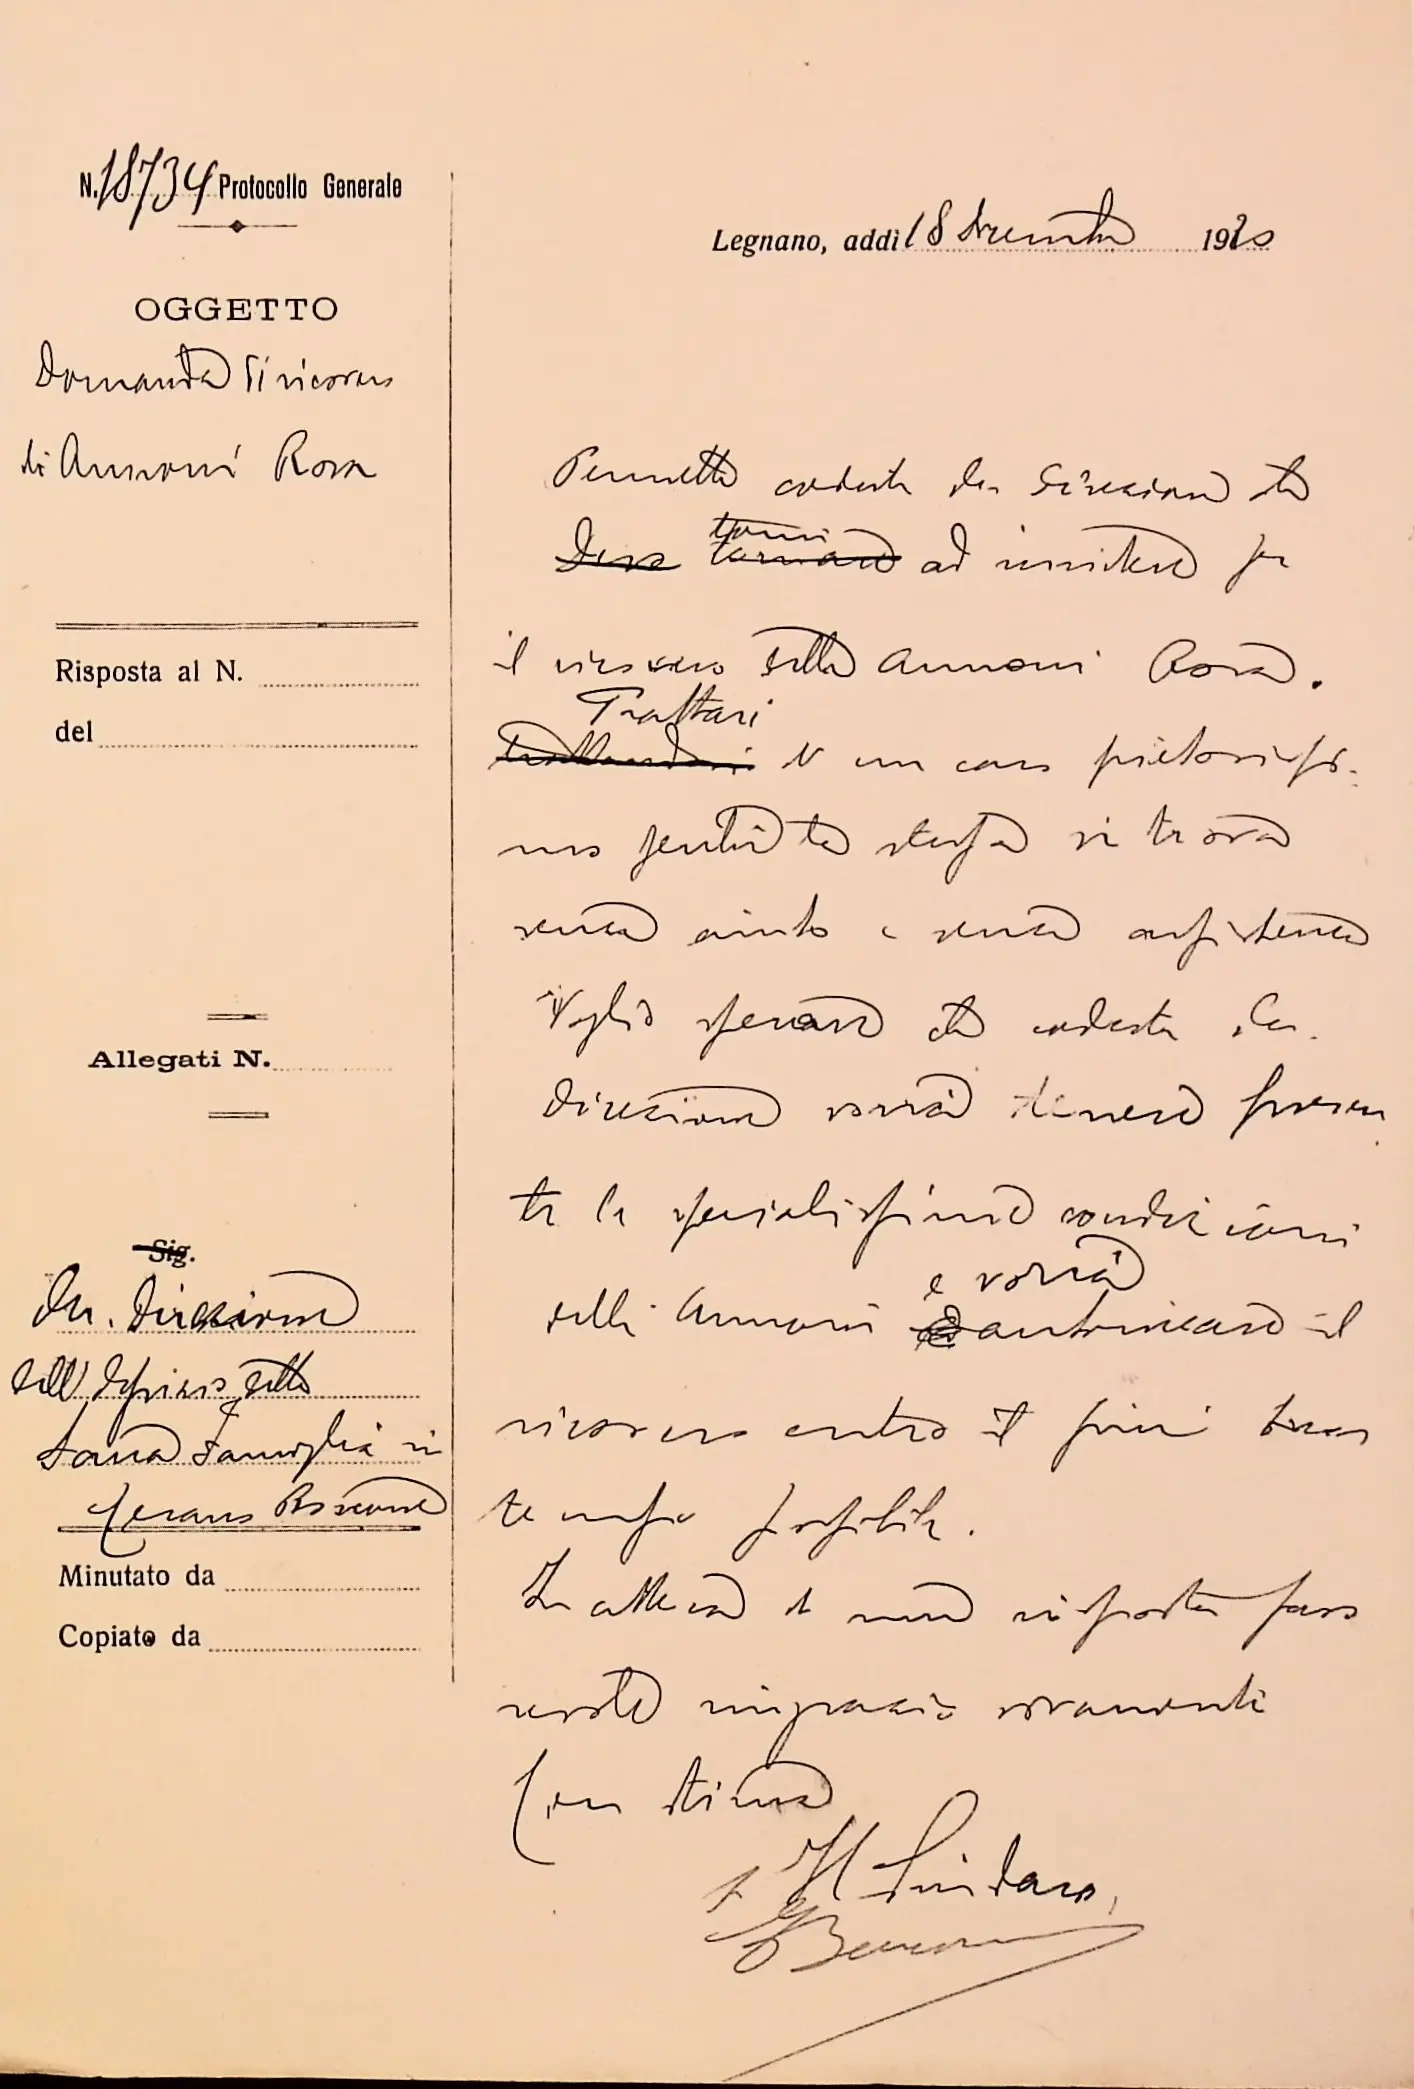 N. 18734 Protocollo Generale
Legnano, addì 18 Dicembre 1920
OGGETTO
Domanda di ricovero
di Annoni Rosa
Permetta codesta On. Direzione che
torni ad insistere per
il ricovero della Annoni Rosa.
Trattasi di un caso pietosissi-
mo perchè la stessa si trova
senza aiuto e senza assistenza
Voglio sperare che codesta On.
Direzione vorrà tenere presen
te le specialissime condizioni
della Annoni e vorrà autorizzare il
ricovero entro il più breve
tempo possibile.
In attesa di una risposta favo
revole ringrazio vivamente
Con stima
Il Sindaco
Risposta al N.
del
Allegati N.
Sig.
On. Direzione
dell'Ospizio della
Sacra Famiglia in
Cesano Boscone
Minutato da
Copiato da